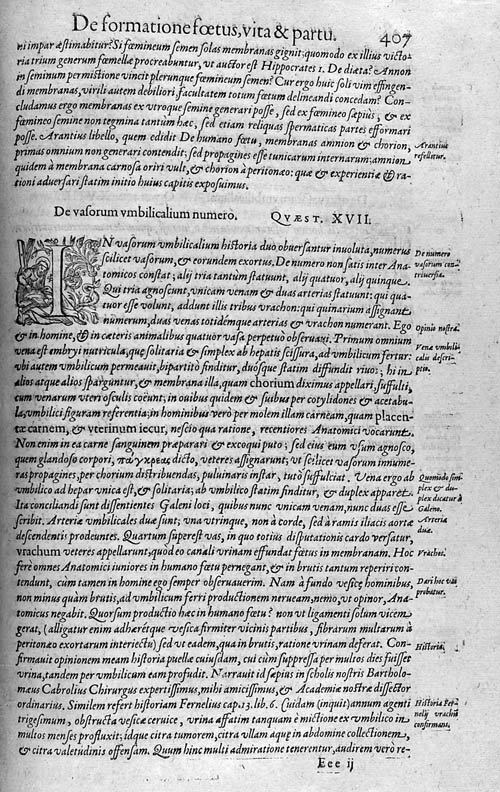 De formatione fœtus, vita & partu. 407
ni impar æstimabitur? Si fœmineum semen solas membranas gignit: quomodo ex illius victo-
ria trium generum fœmellæ procreabuntur, vt auctor est Hippocrates 1. De diæta? Annon
in seminum permistione vincit plerunque fœmineum semen? Cur ergo huic soli vim effingen-
di membranas, virili autem debiliori, facultatem totum fœtum delineandi concedam? Con-
cludamus ergo membranas ex vtroque semine generari posse, sed ex fœmineo sæpius, & ex
fœmineo semine non tegmina tantùm hæc, sed etiam reliquas spermaticas partes efformari
posse. Arantius libello, quem edidit De humano fœtu, membranas amnion & chorion,
primas omnium non generari contendit: sed propagines esse tunicarum internarum: amnion
quidem à membrana carnosa oriri vult, & chorion à peritonæo: quæ & experientiæ & ra-
tioni aduersari statim initio huius capitis exposuimus.
Arantius
refellitur.
De vasorum vmbilicalium numero. QVÆST. XVII.
IN vasorum vmbilicalium historia duo obuersantur inuoluta, numerus
scilicet vasorum, & eorundem exortus. De numero non satis inter Ana-
tomicos constat: alij tria tantùm statuunt, alij quatuor, alij quinque.
Qui tria agnoscunt, vnicam venam & duas arterias statuunt: qui qua-
tuor esse volunt, addunt illis tribus vrachon: qui quinarium assignant
numerum, duas venas totidémque arterias & vrachon numerant. Ego
& in homine, & in cæteris animalibus quatuor vasa perpetuò obseruaui. Primum omnium
vena est embryi nutricula, quæ solitaria & simplex ab hepatis scissura, ad vmbilicum fertur:
vbi autem vmbilicum permeauit, bipartitò finditur, duósque statim diffundit riuos: hi in
alios atque alios sparguntur, & membrana illa, quam chorium diximus appellari, suffulti,
cum venarum vteri osculis coëunt: in ouibus quidem & suibus per cotyledones & acetabu-
la, vmbilici figuram referentia: in hominibus verò per molem illam carneam, quam placen-
tæ carnem, & vterinum iecur, nescio qua ratione, recentiores Anatomici vocarunt.
Non enim in ea carne sanguinem præparari & excoqui puto; sed eius eum vsum agnosco,
quem glandoso corpori, πάγκρεας dicto, veteres assignarunt: vt scilicet vasorum innume-
ras propagines, per chorium distribuendas, puluinaris instar, tutò suffulciat. Vena ergo ab
vmbilico ad hepar vnica est, & solitaria; ab vmbilico statim finditur, & duplex apparet.
Ita conciliandi sunt dissentientes Galeni loci, quibus nunc vnicam venam, nunc duas esse
scribit. Arteriæ vmbilicales duæ sunt; vna vtrinque, non à corde, sed à ramis iliacis aortæ
descendentis prodeuntes. Quartum superest vas, in quo totius disputationis cardo versatur,
vrachum veteres appellarunt, quòd eo canali vrinam effundat fœtus in membranam. Hoc
ferè omnes Anatomici iuniores in humano fœtu pernegant, & in brutis tantùm reperiri con-
tendunt, cùm tamen in homine ego semper obseruauerim. Nam à fundo vesicæ hominibus,
non minus quàm brutis, ad vmbilicum ferri productionem nerueam, nemo, vt opinor, Ana-
tomicus negabit. Quorsum productio hæc in humano fœtu? non vt ligamenti solum vicem
gerat, (alligatur enim adhærétque vesica firmiter vicinis partibus, fibrarum multarum à
peritonæo exortarum interiectu) sed vt eadem, qua in brutis, ratione vrinam deferat. Con-
firmauit opinionem meam historia puellæ cuiusdam, cui cùm suppressa per multos dies fuisset
vrina, tandem per vmbilicum eam profudit. Narrauit id sæpius in scholis nostris Bartholo-
mæus Cabrolius Chirurgus expertissimus, mihi amicissimus, & Academiæ nostræ dissector
ordinarius. Similem refert historiam Fernelius cap. 13. lib. 6. Cuidam (inquit) annum agenti
trigesimum, obstructa vesicæ ceruice, vrina affatim tanquam è mictione ex vmbilico in
multos menses profluxit; idque citra tumorem, citra vllam aquæ in abdomine collectionem,
& citra valetudinis offensam. Quum hinc multi admiratione tenerentur, audirem verò re-
De numero
vasorum con-
trouersia.
Opinio nostra.
Vena vmbili-
calis descri-
ptio.
Quomodo sim-
plex & du-
plex dicatur à
Galeno.
Arteriæ
duæ.
Vrachus.
Dari hoc vas
probatur.
Historia.
Historia Fer-
nelij vrachũ
confirmans.
Eee ij